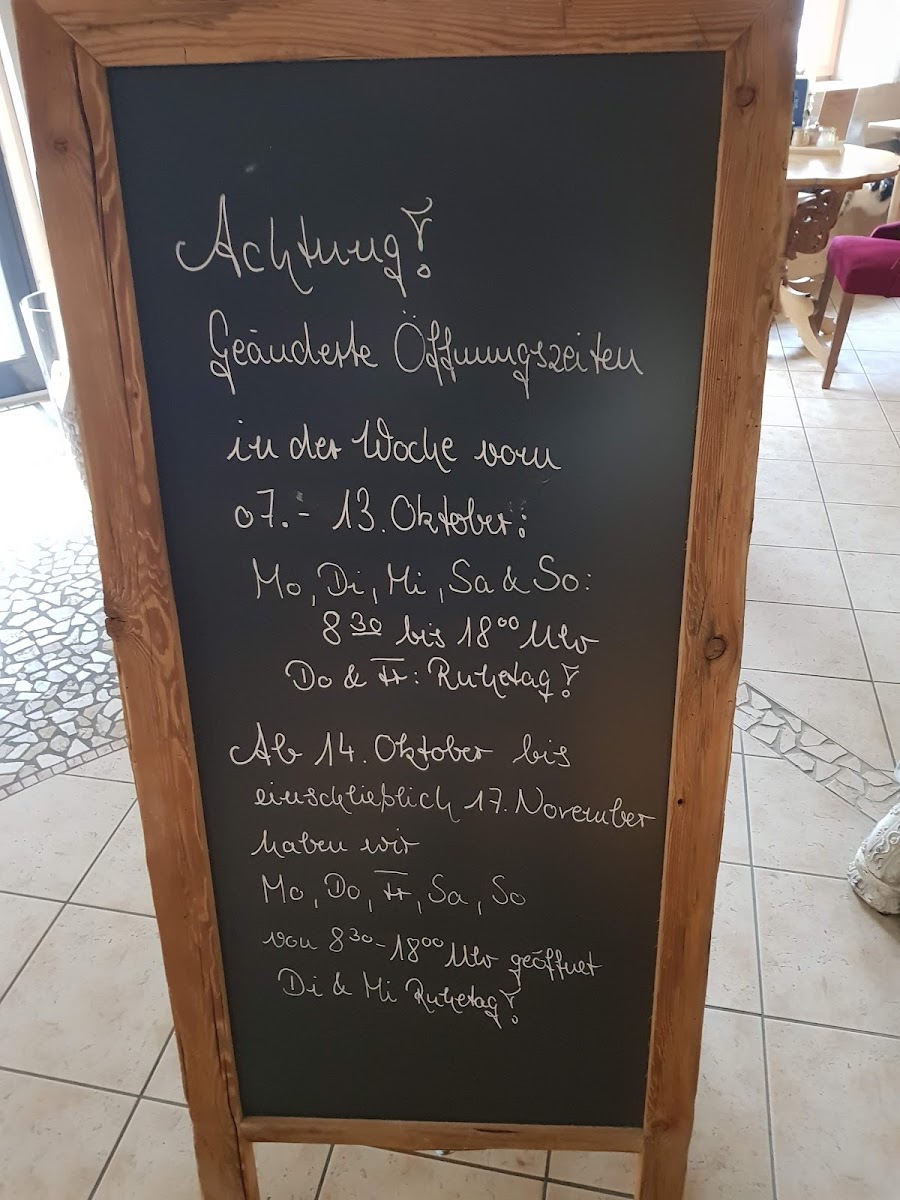 Achtung!
Geänderte Öffnungszeiten
in der Woche vom
07.- 13. Oktober:
Mo, Di, Mi, Sa & So:
8³⁰ bis 18⁰⁰ Uhr
Do & Fr: Ruhetag!
Ab 14. Oktober bis
einschließlich 17. November
haben wir
Mo, Do, Fr, Sa, So
von 8³⁰-18⁰⁰ Uhr geöffnet
Di & Mi Ruhetag!